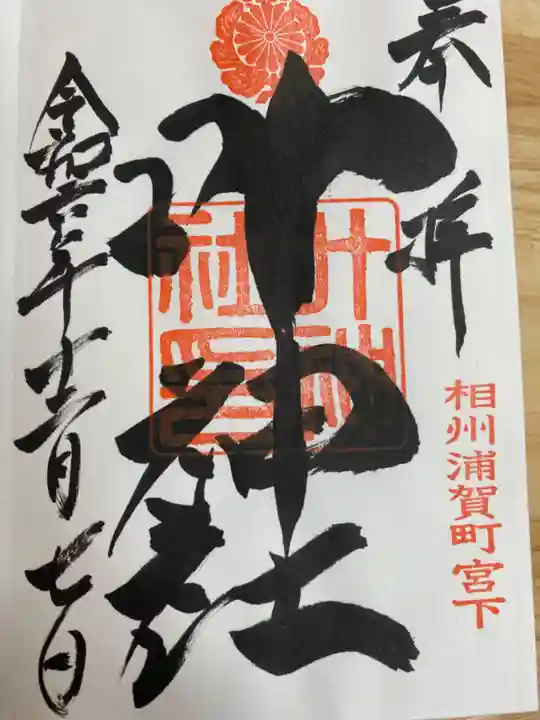 奉拝
相州浦賀町宮下
叶神社
叶神
社印
令和六年十二月七日